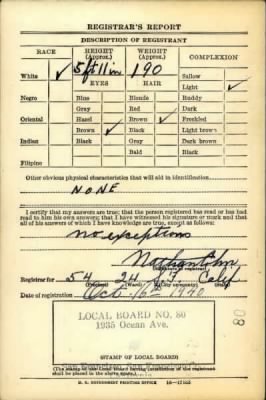 REGISTRAR'S REPORT
DESCRIPTION OF REGISTRANT
RACE HEIGHT (Approx.) WEIGHT (Approx.) COMPLEXION
White ✓ 5 ft 11 in 190 Sallow
EYES HAIR Light ✓
Negro Blue Blonde Ruddy
Gray Red Dark
Oriental Hazel Brown ✓ Freckled
Brown ✓ Black Light brown
Indian Black Gray Dark brown
Bald Black
Filipino
Other obvious physical characteristics that will aid in identification
NONE
I certify that my answers are true; that the person registered has read or has had
read to him his own answers; that I have witnessed his signature or mark and that
all of his answers of which I have knowledge are true, except as follows:
no exceptions
Nathan Cohn
(Signature of registrar)
Registrar for 54 24 S.F. Calif
(Precinct) (Ward) (City or county)
Date of registration Oct. 16th 1940
LOCAL BOARD NO. 80
1935 Ocean Ave.
80
(STAMP OF LOCAL BOARD)
(The stamp of the Local Board having jurisdiction of the registrant
shall be placed in the above space.)
U. S. GOVERNMENT PRINTING OFFICE 16—17105